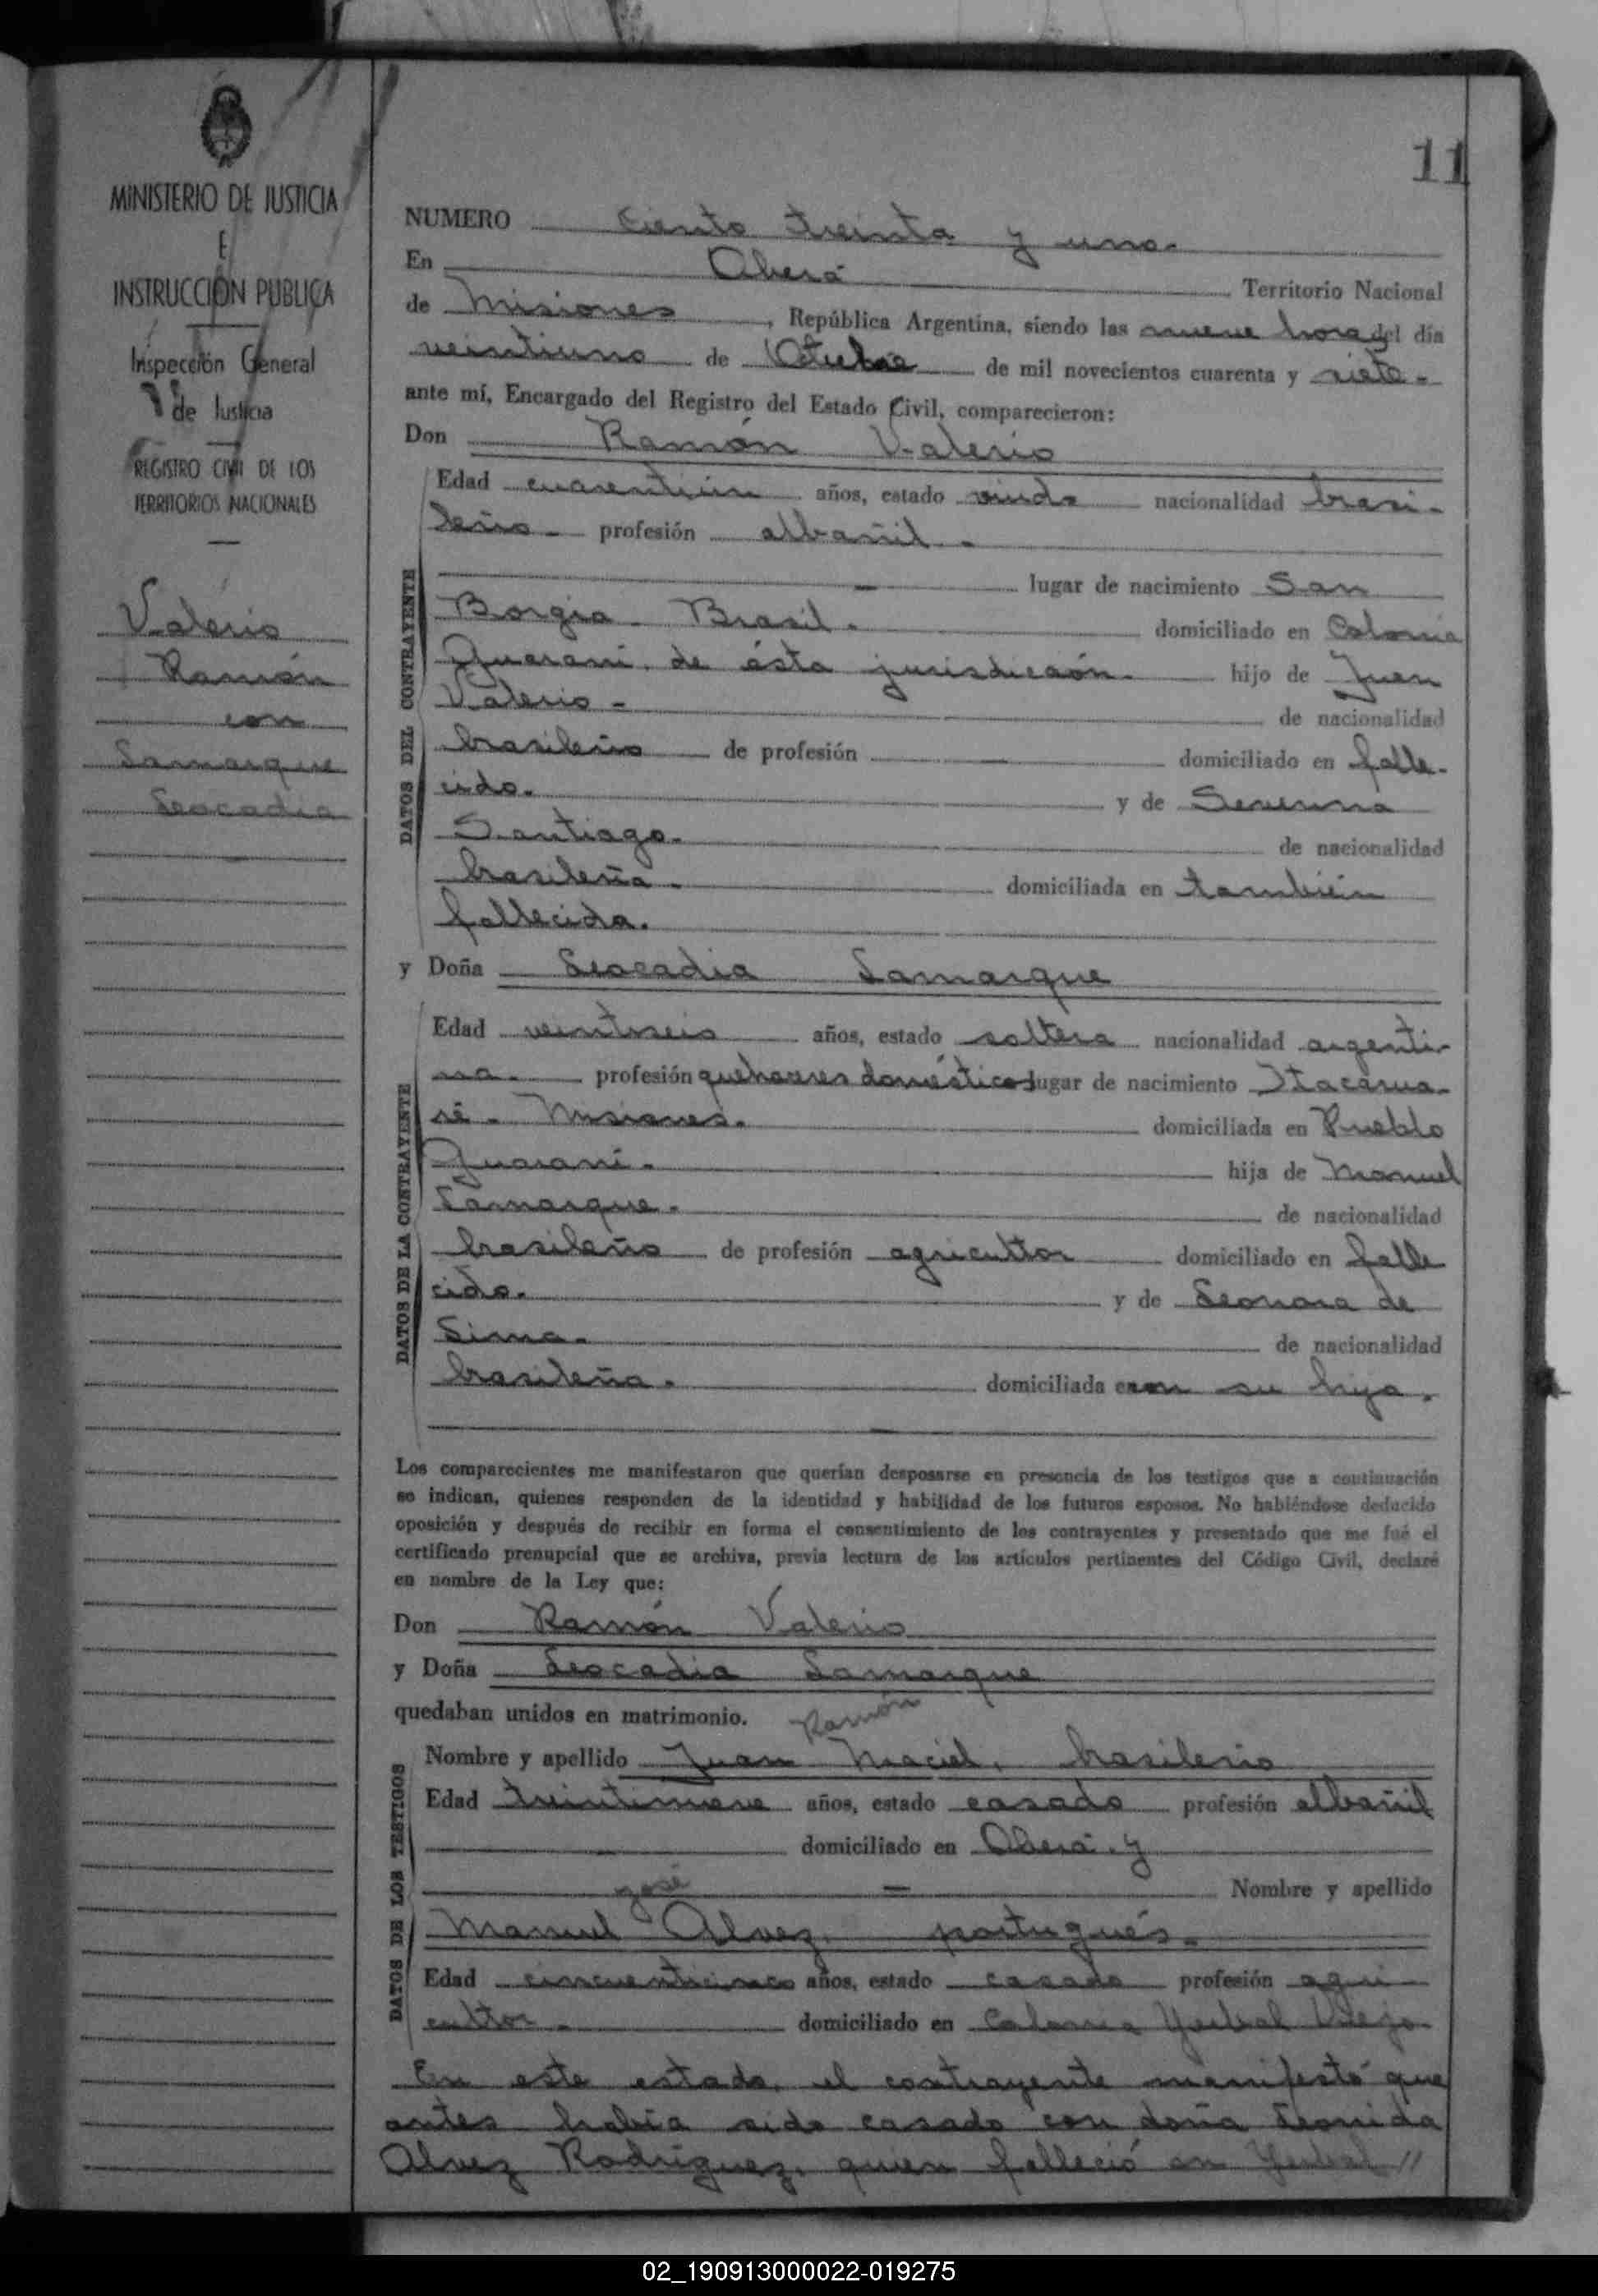 MINISTERIO DE JUSTICIA
E
INSTRUCCION PUBLICA
Inspección General
de Justicia
REGISTRO CIVIL DE LOS
TERRITORIOS NACIONALES
Valerio
Ramón
con
Lamarque
Leocadia
11
NUMERO Ciento treinta y uno.
En Oberá Territorio Nacional
de Misiones, República Argentina, siendo las nueve horas del día
veintiuno de Octubre de mil novecientos cuarenta y siete.
ante mí, Encargado del Registro del Estado Civil, comparecieron:
Don Ramón Valerio
DATOS DEL CONTRAYENTE
Edad cuarentiún años, estado viudo nacionalidad brasi-
leño. profesión albañil.
lugar de nacimiento San
Borgia. Brasil. domiciliado en Colonia
Guaraní, de ésta jurisdicción. hijo de Juan
Valerio. de nacionalidad
brasileño de profesión domiciliado en falle-
cido. y de Severina
Santiago. de nacionalidad
brasileña. domiciliada en también
fallecida.
y Doña Leocadia Lamarque
DATOS DE LA CONTRAYENTE
Edad veintiseis años, estado soltera nacionalidad argenti-
na. profesión quehaceres domésticos lugar de nacimiento Itacarua-
ré. Misiones. domiciliada en Pueblo
Guaraní. hija de Manuel
Lamarque. de nacionalidad
brasileño de profesión agricultor domiciliado en falle
cido. y de Leonora de
Lima. de nacionalidad
brasileña. domiciliada con su hija.
Los comparecientes me manifestaron que querían desposarse en presencia de los testigos que a continuación
se indican, quienes responden de la identidad y habilidad de los futuros esposos. No habiéndose deducido
oposición y después de recibir en forma el consentimiento de los contrayentes y presentado que me fué el
certificado prenupcial que se archiva, previa lectura de los artículos pertinentes del Código Civil, declaré
en nombre de la Ley que:
Don Ramón Valerio
y Doña Leocadia Lamarque
quedaban unidos en matrimonio.
Ramón
DATOS DE LOS TESTIGOS
Nombre y apellido Juan Maciel, brasileño
Edad treintinueve años, estado casado profesión albañil
domiciliado en Oberá. y
José
Nombre y apellido
Manuel Alvez, portugués.
Edad cincuenticinco años, estado casado profesión agri
cultor. domiciliado en Colonia Yerbal Viejo
En este estado, el contrayente manifestó que
antes había sido casado con doña Leonida
Alvez Rodríguez, quien falleció en Yerbal //
02_190913000022-019275